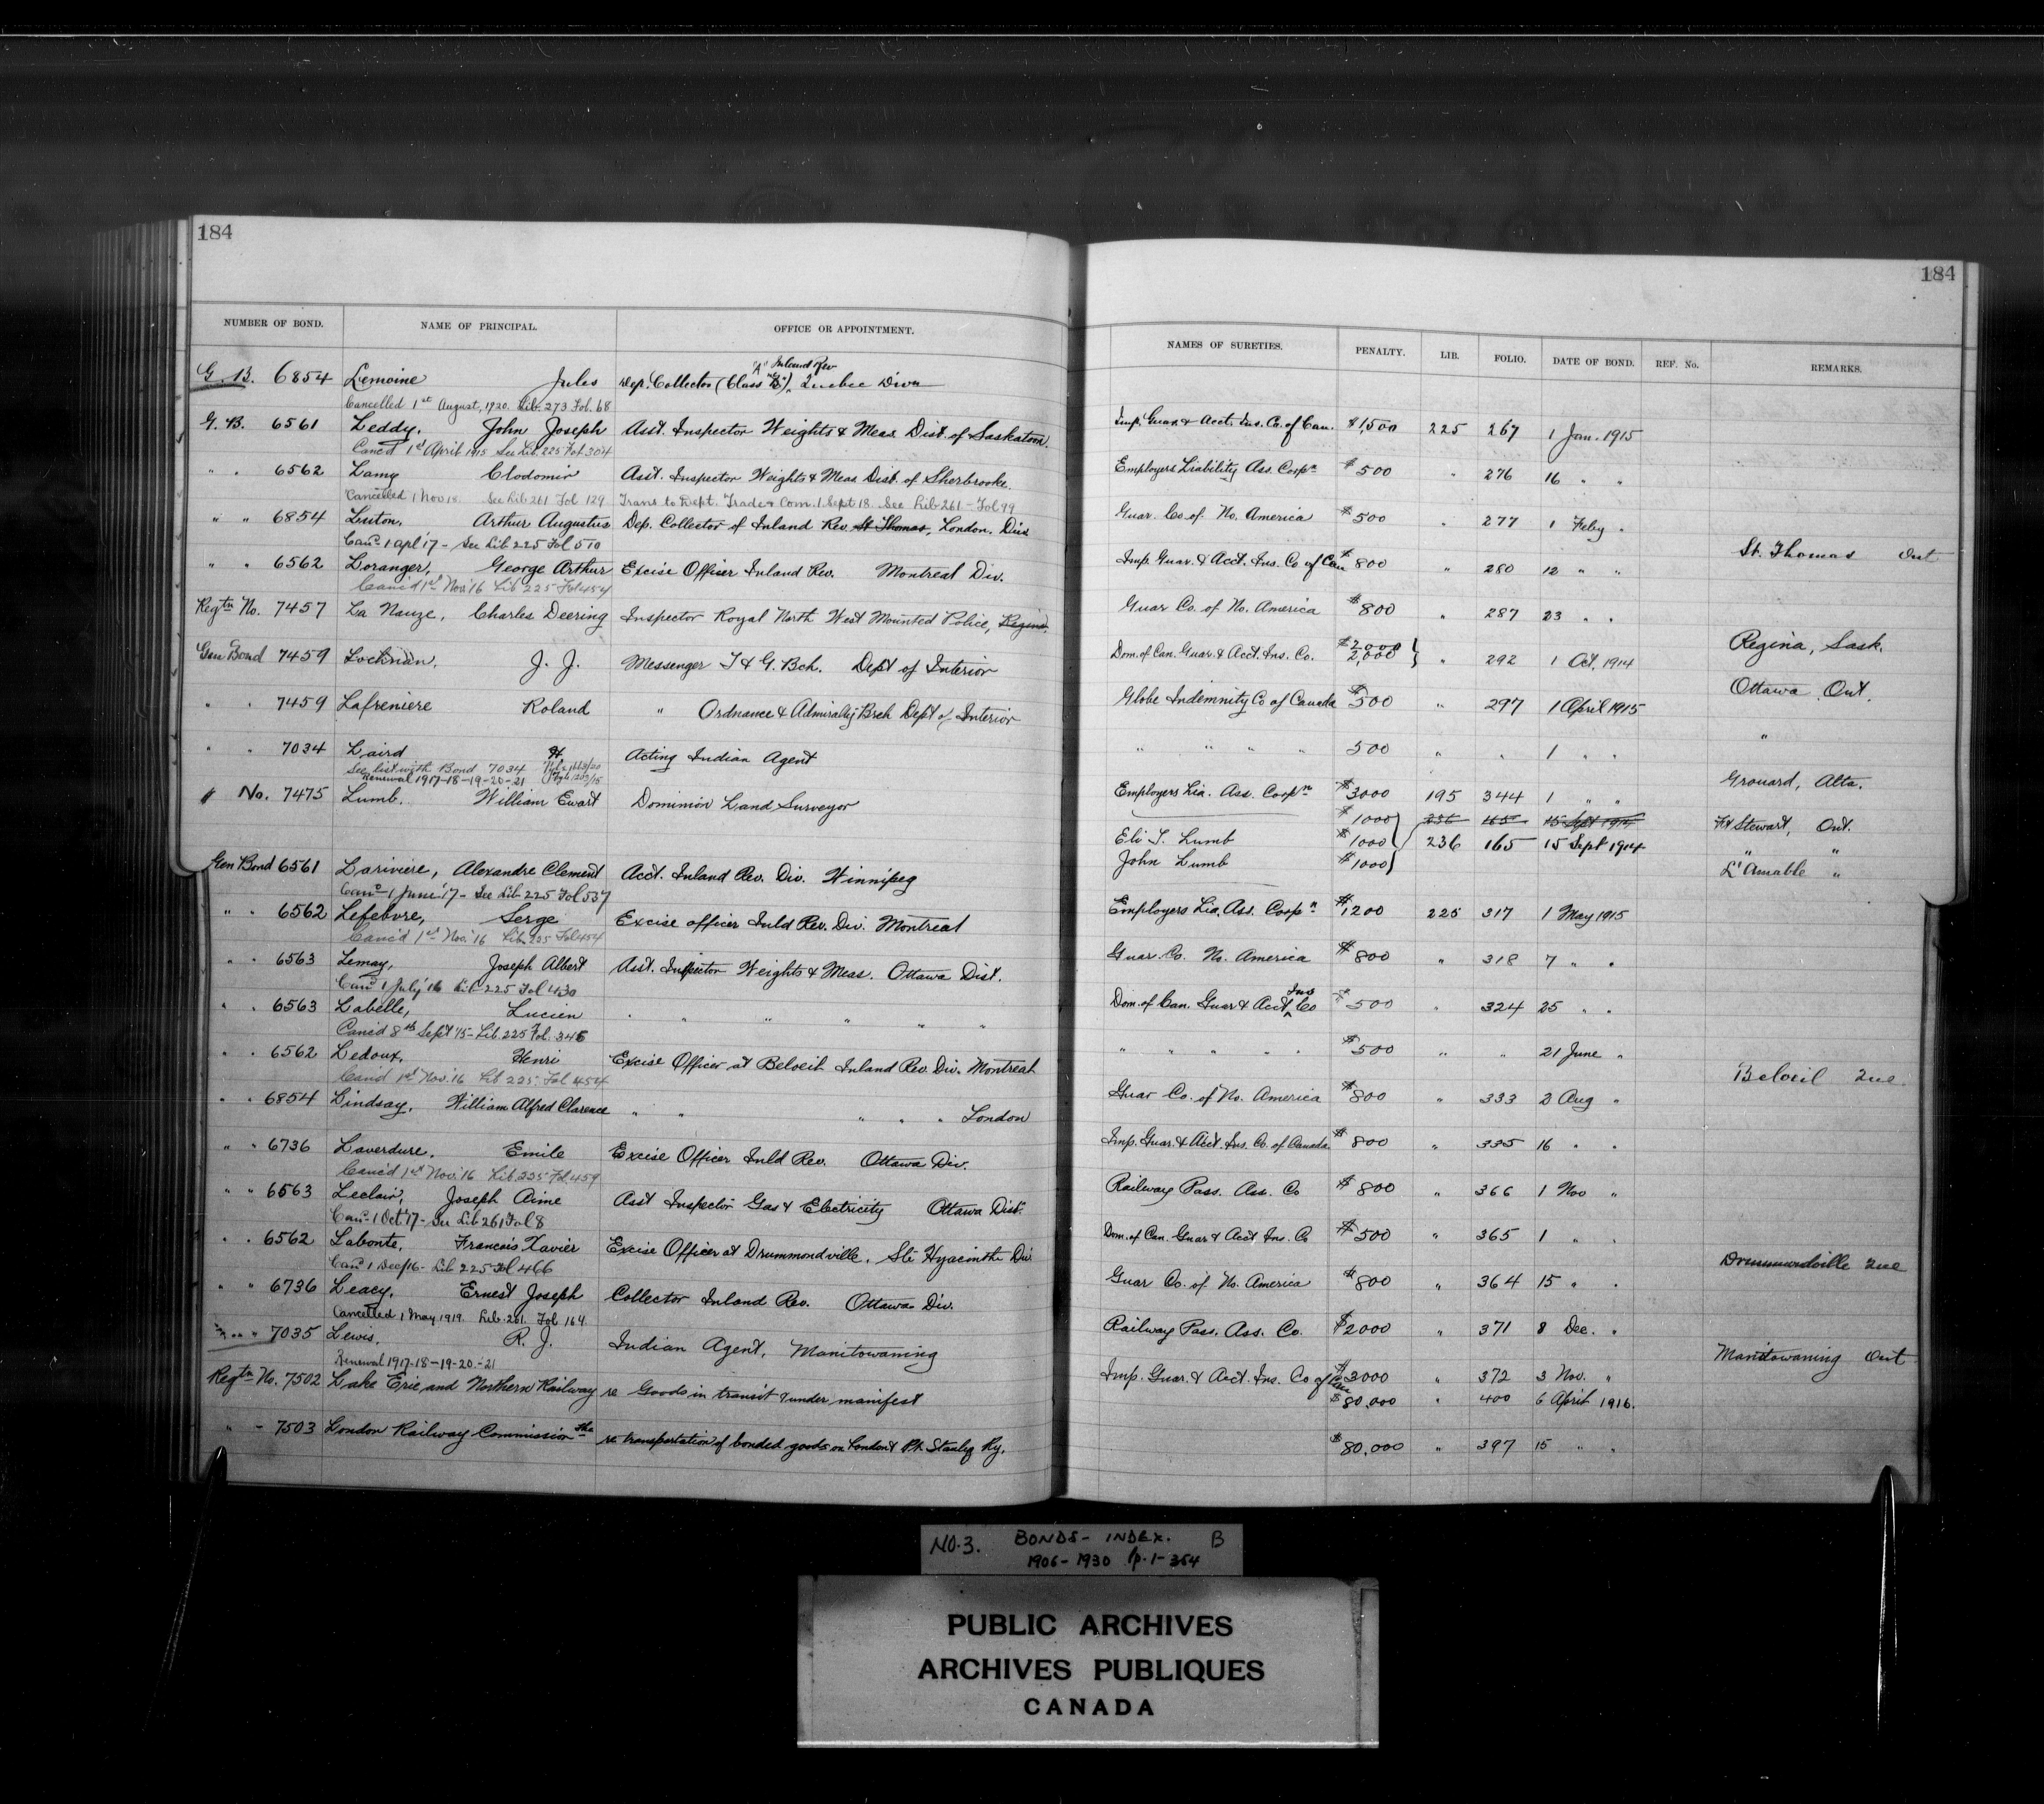 184
184
NUMBER OF BOND. NAME OF PRINCIPAL. OFFICE OR APPOINTMENT. NAMES OF SURETIES. PENALTY. LIB. FOLIO. DATE OF BOND. REF. No. REMARKS.
"A" Inland Rev
G. B. 6854 Lemoine Jules Dep. Collector (Class "B"), Quebec Divn Imp. Guar. & Acct. Ins. Co. of Can. $1,500 225 267 1 Jan. 1915
Cancelled 1st August, 1920. Lib. 273 Fol. 68
G. B. 6561 Leddy, John Joseph Asst. Inspector Weights & Meas. Dist. of Saskatoon. Employers Liability Ass. Corpn $500 " 276 16 " "
Canc'd 1st April 1915 See Lib. 225 Fol. 304
" " 6562 Lamy Clodomir Asst. Inspector Weights & Meas Dist. of Sherbrooke. Guar. Co. of No. America $500 " 277 1 Feby "
Cancelled 1 Nov 18. See Lib 261 Fol 129 Trans to Dept. Trade & Com. 1 Sept 18. See Lib 261 - Fol 99
" " 6854 Luton, Arthur Augustus Dep. Collector of Inland Rev. St Thomas, London. Divn Imp. Guar. & Acct. Ins. Co of Can $800 " 280 12 " " St. Thomas Ont
Canc 1 Apl '17 - See Lib 225 Fol 510
" " 6562 Loranger, George Arthur Excise Officer Inland Rev. Montreal Div. Guar Co. of No. America $800 " 287 23 " "
Canc'd 1st Nov. '16 Lib 225 Fol 454
Regtn No. 7457 La Nauze, Charles Deering Inspector Royal North West Mounted Police, Regina. Dom. of Can. Guar. & Acct. Ins. Co. $2000 2,000 " 292 1 Oct. 1914 Regina, Sask.
Gen Bond 7459 Lochnan, J. J. Messenger T & G. Bch. Dept of Interior Globe Indemnity Co of Canada $500 " 297 1 April 1915 Ottawa Ont.
" " 7459 Lafreniere Roland " Ordnance & Admiralty Brch Dept of Interior " " " " 500 " " 1 " " "
" " 7034 Laird H Acting Indian Agent Employers Lia. Ass. Corpn $3000 195 344 1 " " Grouard, Alta.
See list with Bond 7034
Renewal 1917-18-19-20-21
" No. 7475 Lumb. William Ewart Dominion Land Surveyor $1000 236 165 15 Sept 1914 Ft Stewart, Ont.
Eli T. Lumb $1000 236 165 15 Sept 1914 " "
John Lumb $1000 L'Amable "
Gen Bond 6561 Lariviere, Alexandre Clement Acct. Inland Rev. Div. Winnipeg Employers Lia. Ass. Corpn $1200 225 317 1 May 1915
Canc 1 June '17 - See Lib 225 Fol 537
" " 6562 Lefebvre, Serge Excise officer Inld Rev. Div. Montreal Guar. Co. No. America $800 " 318 7 " "
Canc'd 1st Nov. '16 Lib. 225 Fol 454
" " 6563 Lemay, Joseph Albert Asst. Inspector Weights & Meas. Ottawa Dist. Dom. of Can. Guar & Acct Ins Co $500 " 324 25 " "
Canc 1 July '16 Lib 225 Fol 430
" " 6563 Labelle, Lucien " " " " " " " " " " " $500 " " 21 June "
Canc'd 8th Sept '15 - Lib. 225 Fol. 346
" " 6562 Ledoux, Henri Excise Officer at Beloeil Inland Rev. Div. Montreal Guar Co. of No. America $800 " 333 2 Aug " Beloeil Que.
Canc'd 1st Nov. '16 Lib 225 Fol 454
" " 6854 Lindsay, William Alfred Clarence " " " " " London Imp. Guar. & Acct. Ins. Co. of Canada $800 " 335 16 " "
" " 6736 Laverdure, Emile Excise Officer Inld Rev. Ottawa Div. Railway Pass. Ass. Co $800 " 366 1 Nov "
Canc'd 1st Nov. '16 Lib. 225 Fol 459
" " 6563 Leclair, Joseph Aime Asst Inspector Gas & Electricity Ottawa Dist. Dom. of Can. Guar & Acct Ins. Co $500 " 365 1 " "
Canc 1 Oct '17 - See Lib 261 Fol 8
" " 6562 Labonte, Francois Xavier Excise Officer at Drummondville, Ste Hyacinthe Div Guar Co. of No. America $800 " 364 15 " " Drummondville Que
Canc 1 Dec/16 - Lib 225 Fol 466
" " 6736 Leacy, Ernest Joseph Collector Inland Rev. Ottawa Div. Railway Pass. Ass. Co. $2000 " 371 8 Dec. "
Cancelled 1 May 1919. Lib. 261. Fol 164
" " 7035 Lewis, R. J. Indian Agent, Manitowaning Imp. Guar. & Acct. Ins. Co of Can $3000 " 372 3 Nov. " Manitowaning Ont
Renewal 1917-18-19-20-21
Regtn No. 7502 Lake Erie and Northern Railway re Goods in transit & under manifest $80,000 " 400 6 April 1916.
" - 7503 London Railway Commission The re transportation of bonded goods on London & Pt. Stanley Ry. $80,000 " 397 15 " "
NO. 3. BONDS - INDEX. B
1906 - 1930 p. 1 - 364
PUBLIC ARCHIVES
ARCHIVES PUBLIQUES
CANADA